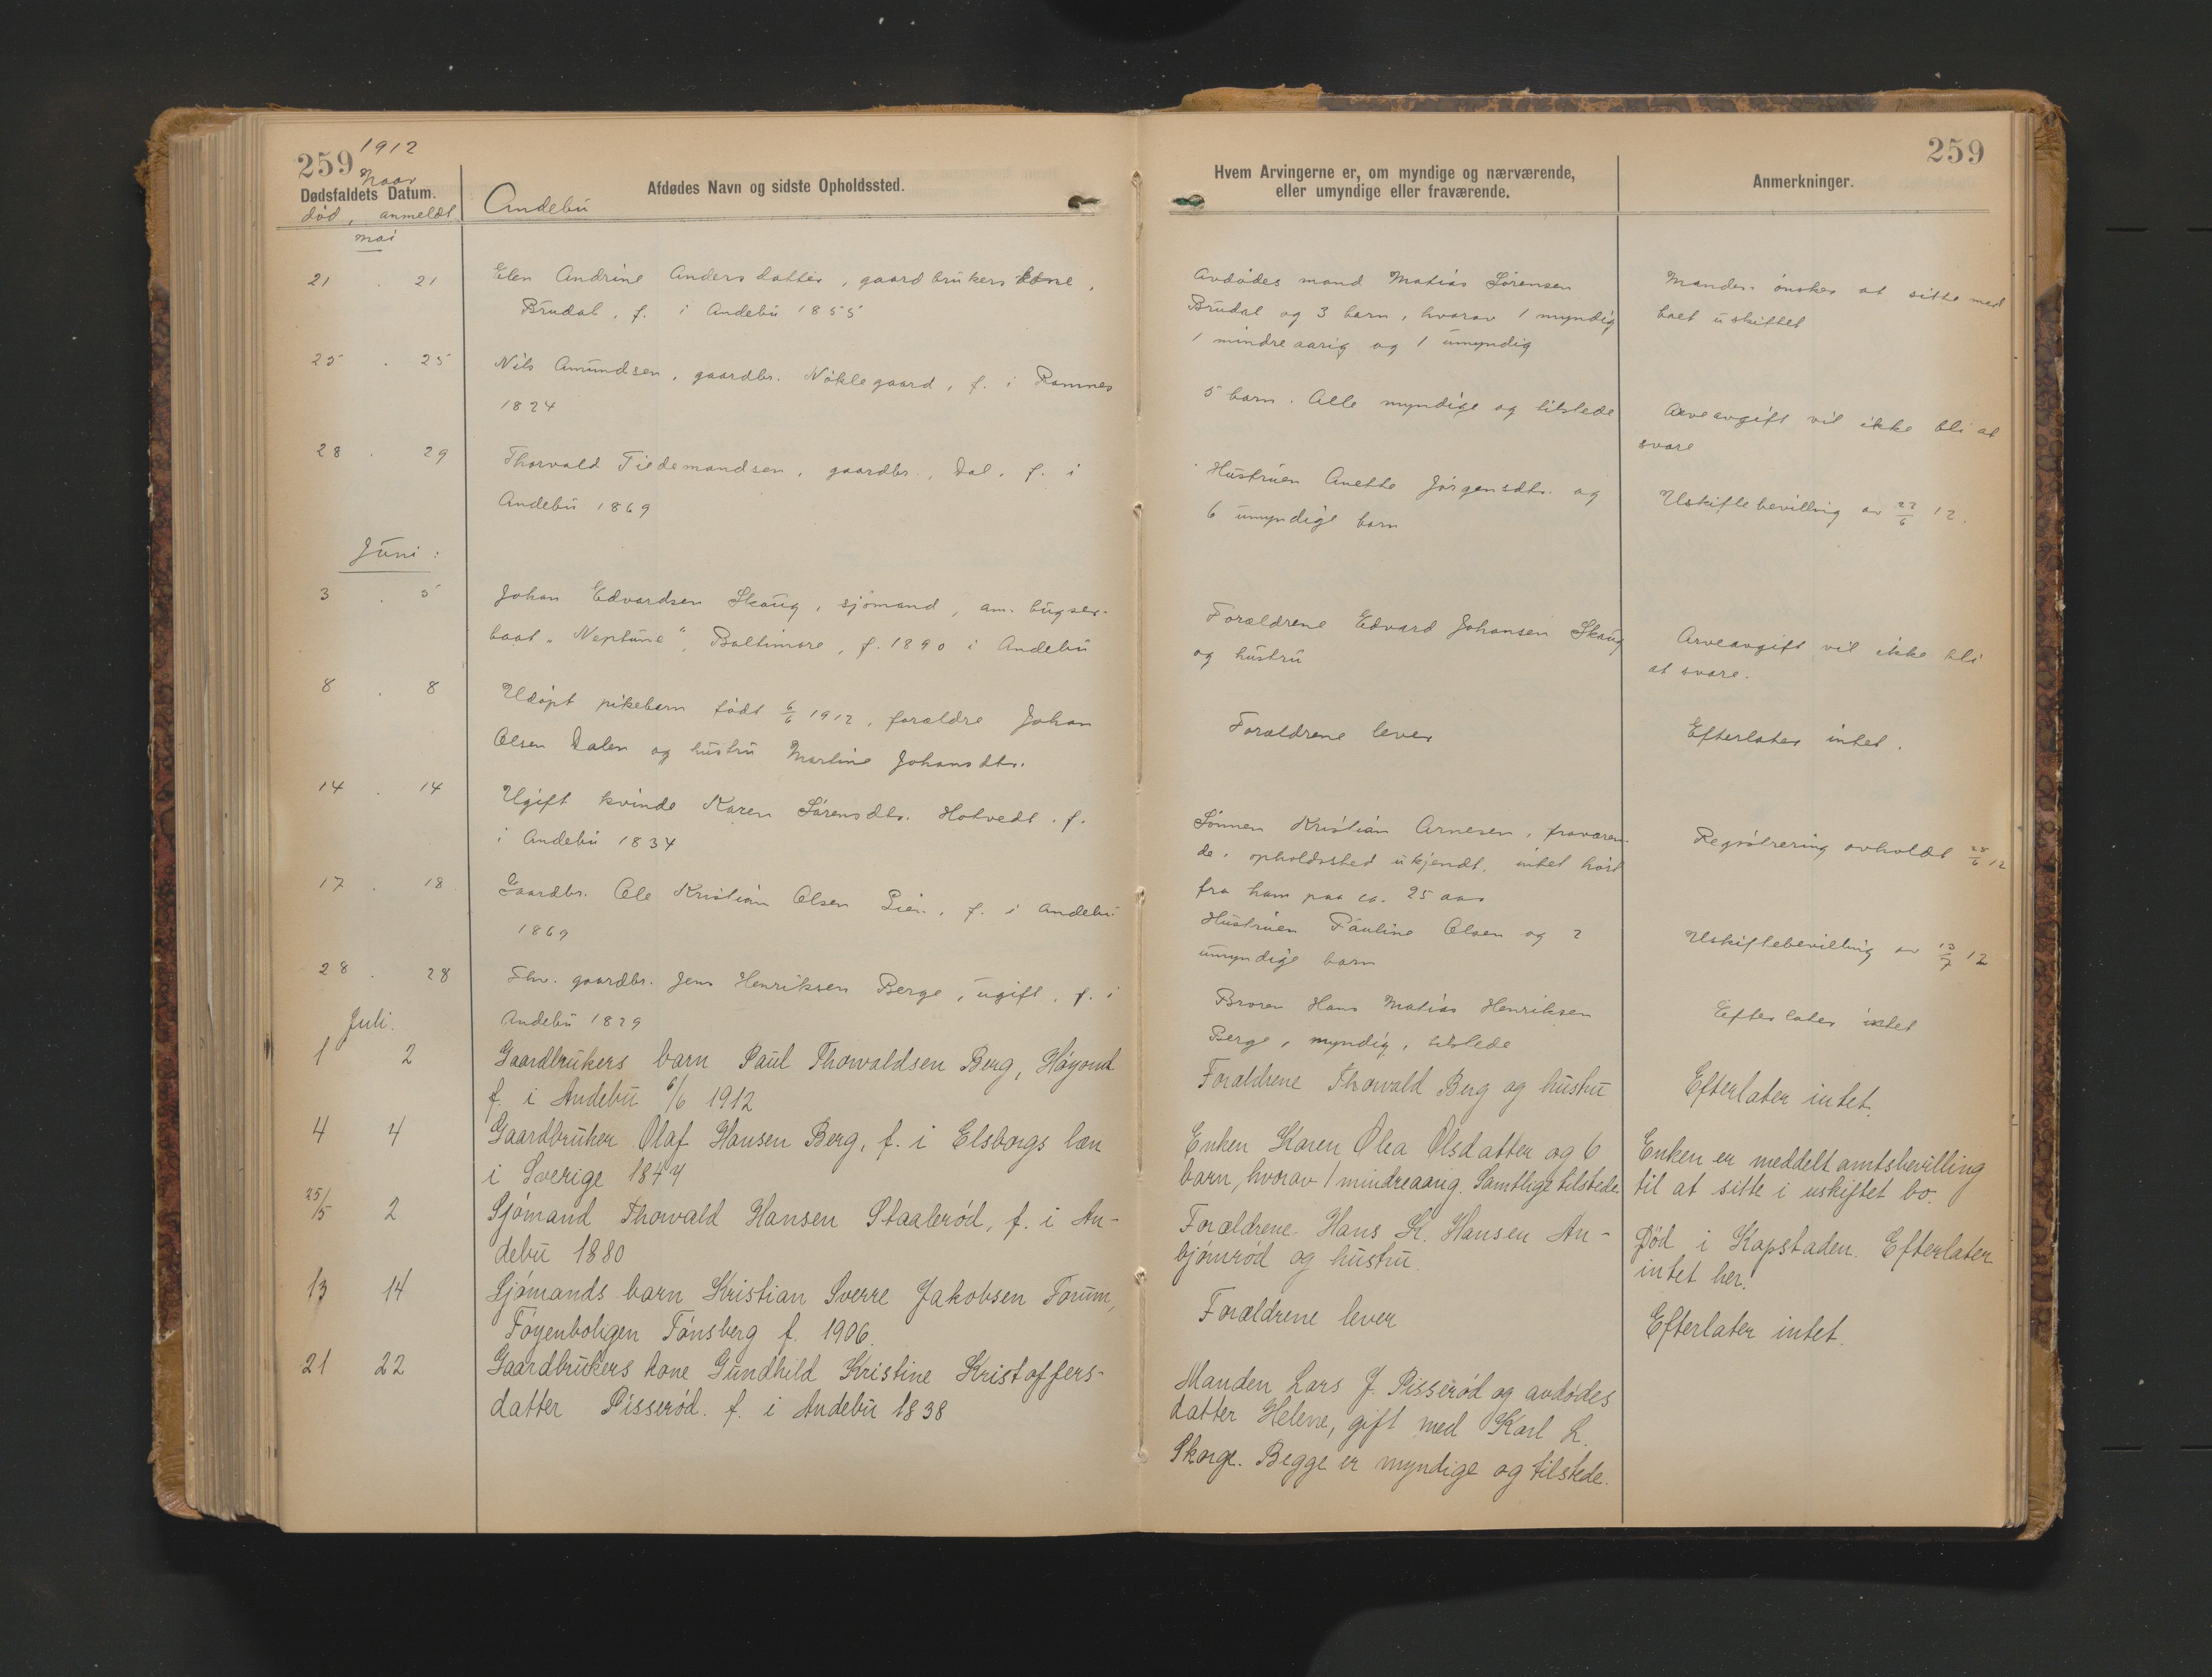 259 1912
Naar
Dødsfaldets Datum.
død, anmeldt
Andebu
Afdødes Navn og sidste Opholdssted.
mai
21 . 21 Elen Andrine Andersdatter, gaardbrukers kone,
Brudal, f. i Andebu 1855
25 . 25 Nils Amundsen, gaardbr. Nøklegaard, f. i Ramnes
1824
28 . 29 Thorvald Tiedemandsen, gaardbr., Dal, f. i
Andebu 1869
Juni:
3 . 5 Johan Edvardsen Skaug, sjømand, am. bugser-
baat „Neptune“, Baltimore, f. 1890 i Andebu
8 . 8 Udøpt pikebarn født 6/6 1912, forældre Johan
Olsen Dalen og hustru Martine Johansdtr.
14 . 14 Ugift kvinde Karen Sørensdtr. Hotvedt, f.
i Andebu 1834
17 . 18 Gaardbr. Ole Kristian Olsen Lien, f. i Andebu
1869
28 . 28 Fhv. gaardbr. Jens Henriksen Berge, ugift, f. i
Andebu 1829
Juli.
1 2 Gaardbrukers barn Paul Thorvaldsen Berg, Høyond
f. i Andebu 6/6 1912
4 4 Gaardbruker Olaf Hansen Berg, f. i Elsborgs læn
i Sverige 1844
25/5 2 Sjømand Thorvald Hansen Staalerød, f. i An-
debu 1880
13 14 Sjømands barn Kristian Sverre Jakobsen Torum,
Føyenboligen Tønsberg f. 1906.
21 22 Gaardbrukers kone Gundhild Kristine Kristoffers-
datter Pisserød. f. i Andebu 1838
259
Hvem Arvingerne er, om myndige og nærværende,
eller umyndige eller fraværende.
Anmerkninger.
Avdødes mand Matias Sørensen
Brudal og 3 barn, hvorav 1 myndig
1 mindreaarig og 1 umyndig
Manden ønsker at sitte med
boet uskiftet
5 barn. Alle myndige og tilstede
Arveavgift vil ikke bli at
svare
Hustruen Anette Jørgensdtr. og
6 umyndige barn
Uskiftebevilling av 22/6 12.
Forældrene Edvard Johansen Skaug
og hustru
Arveavgift vil ikke bli
at svare.
Forældrene lever
Efterlater intet.
Sønnen Kristian Arnesen, fraværen-
de, opholdssted ukjendt, intet hørt
fra ham paa ca. 25 aar
Registrering avholdt 28/6 12
Hustruen Pauline Olsen og 2
umyndige barn
Uskiftebevilling av 13/7 12
Broren Hans Matias Henriksen
Berge, myndig, tilstede
Efterlater intet
Forældrene Thorvald Berg og hustru
Efterlater intet.
Enken Karen Olea Olsdatter og 6
barn, hvorav 1 mindreaarig. Samtlige tilstede.
Enken er meddelt amtsbevilling
til at sitte i uskiftet bo.
Forældrene. Hans K. Hansen An-
bjørnrød og hustru.
Død i Kapstaden. Efterlater
intet her.
Forældrene lever
Efterlater intet.
Manden Lars J. Pisserød og avdødes
datter Helene, gift med Karl L.
Skorge. Begge er myndige og tilstede.